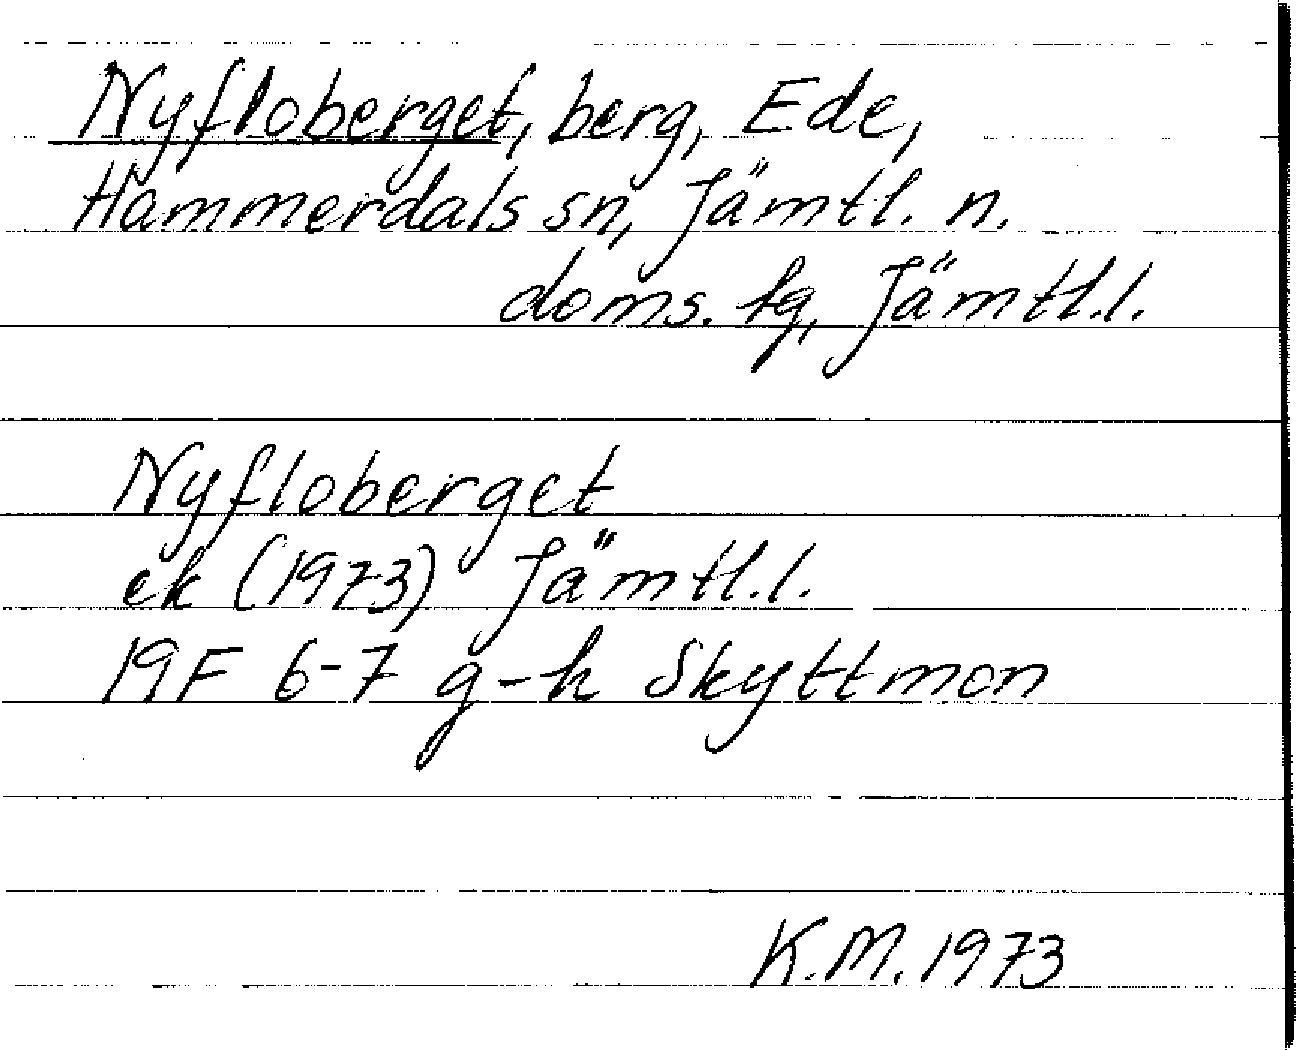 Nyfloberget, berg, Ede,
Hammerdals sn, Jämtl. n.
doms. tg, Jämtl.l.
Nyfloberget
ek (1973) Jämtl.l.
19F 6-7 g-h Skyttmon
K.M. 1973